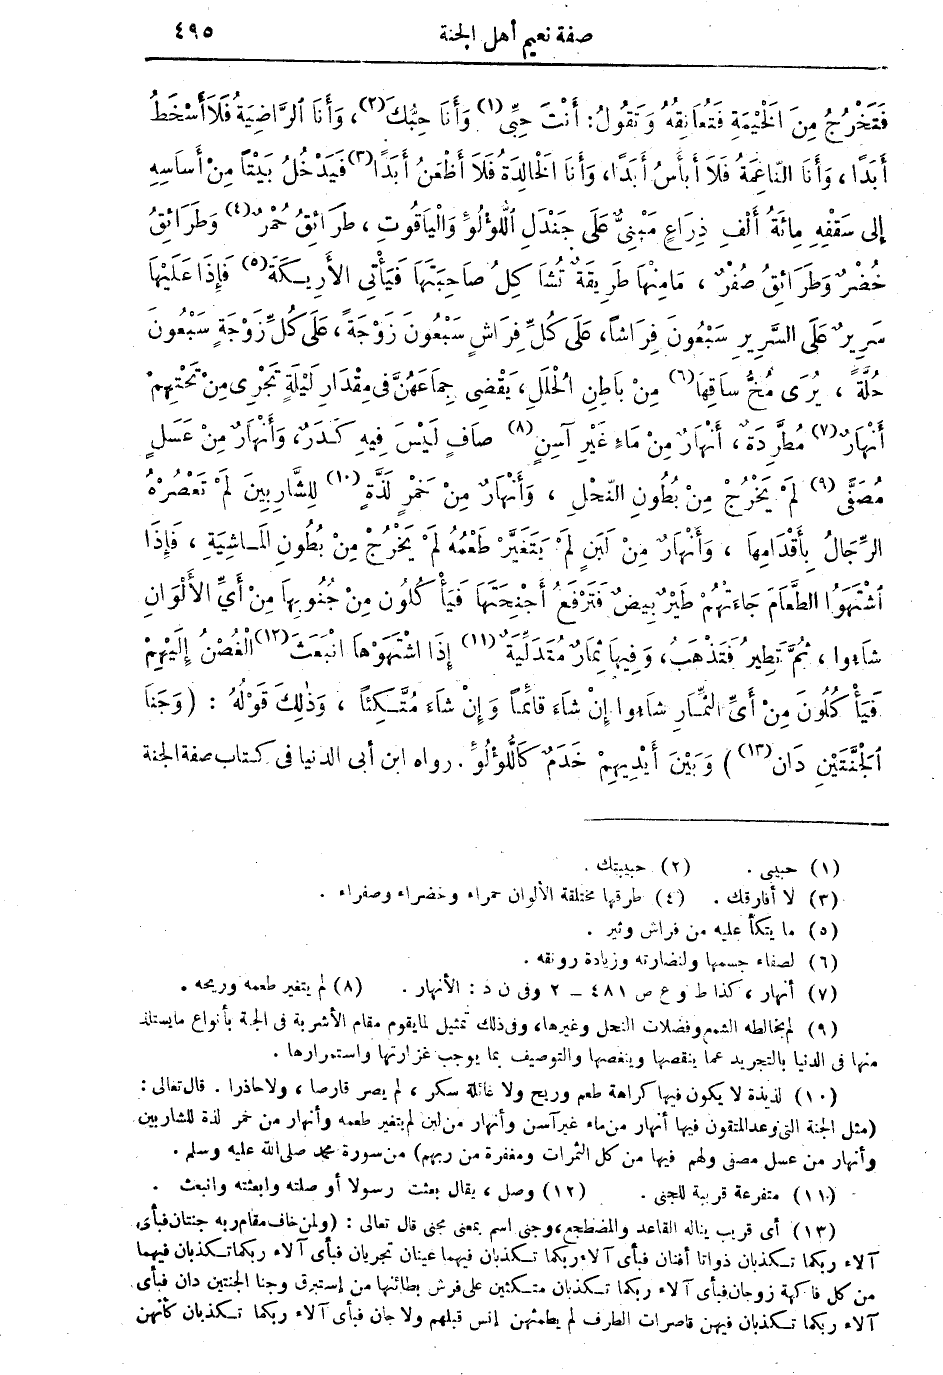 صفة نعيم أهل الجنة ٤٩٥
فَتَخْرُجُ مِنَ الْخَيْمَةِ فَتُعَانِقُهُ وَتَقُولُ: أَنْتَ حِبِّى(١) وَأَنَا حِبُّكَ(٢)، وَأَنَا الرَّاضِيَةُ فَلَا أَسْخَطُ
أَبَدًا، وَأَنَا النَّاعِمَةُ فَلَا أَبْأَسُ أَبَدًا، وَأَنَا الْخَالِدَةُ فَلَا أَظْعَنُ أَبَدًا(٣) فَيَدْخُلُ بَيْتًا مِنْ أَسَاسِهِ
إِلى سَقْفِهِ مِائَةُ أَلْفِ ذِرَاعٍ مَبْنِىٌّ عَلَى جَنْدَلِ اللُّؤْلُؤِ وَالْيَاقُوتِ، طَرَائِقُ حُمْرٌ(٤) وَطَرَائِقُ
خُضْرٌ وَطَرَائِقُ صُفْرٌ، مَامِنْهَا طَرِيقَةٌ تُشَا كِلُ صَاحِبَتَهَا فَيَأْتِى الْأَرِيكَةَ(٥) فَإِذَا عَلَيْهَا
سَرِيرٌ عَلَى السَّرِيرِ سَبْعُونَ فِرَاشًا، عَلَى كُلِّ فِرَاشٍ سَبْعُونَ زَوْجَةً، عَلَى كُلِّ زَوْجَةٍ سَبْعُونَ
حُلَّةً، يُرَى مُخُّ سَاقِهَا(٦) مِنْ بَاطِنِ الْحُلَلِ، يَقْضِى جِمَاعَهُنَّ فِى مِقْدَارِ لَيْلَةٍ تَجْرِى مِنْ تَحْتِهِمْ
أَنْهَارٌ(٧) مُطَّرِدَةٌ، أَنْهَارٌ مِنْ مَاءٍ غَيْرِ آسِنٍ(٨) صَافٍ لَيْسَ فِيهِ كَدَرٌ، وَأَنْهَارٌ مِنْ عَسَلٍ
مُصَفًّى(٩) لَمْ يَخْرُجْ مِنْ بُطُونِ النَّحْلِ، وَأَنْهَارٌ مِنْ خَمْرٍ لَذَّةٍ(١٠) لِلشَّارِبِينَ لَمْ تَعْصُرْهُ
الرِّجَالُ بِأَقْدَامِهَا، وَأَنْهَارٌ مِنْ لَبَنٍ لَمْ يَتَغَيَّرْ طَعْمُهُ لَمْ يَخْرُجْ مِنْ بُطُونِ الْمَاشِيَةِ، فَإِذَا
اشْتَهَوُا الطَّعَامَ جَاءَتْهُمْ طَيْرٌ بِيضٌ فَتَرْفَعُ أَجْنِحَتَهَا فَيَأْكُلُونَ مِنْ جُنُوبِهَا مِنْ أَىِّ الْأَلْوَانِ
شَاءُوا، ثُمَّ تَطِيرُ فَتَذْهَبُ، وَفِيهَا ثِمَارٌ مُتَدَلِّيَةٌ(١١) إِذَا اشْتَهَوْهَا انْبَعَثَ(١٢) الْغُصْنُ إِلَيْهِمْ
فَيَأْكُلُونَ مِنْ أَىِّ الثِّمَارِ شَاءُوا إِنْ شَاءَ قَائِمًا وَإِنْ شَاءَ مُتَّكِئًا، وَذٰلِكَ قَوْلُهُ: (وَجَنَا
الْجَنَّتَيْنِ دَانٍ(١٣)) وَبَيْنَ أَيْدِيهِمْ خَدَمٌ كَاللُّؤْلُؤِ. رواه ابن أبى الدنيا فى كتاب صفة الجنة
(١) حبيبى. (٢) حبيبتك.
(٣) لا أفارقك. (٤) طرقها مختلفة الألوان حمراء وخضراء وصفراء.
(٥) ما يتكأ عليه من فراش وثير.
(٦) لصفاء جسمها ولنضارته وزيادة رونقه.
(٧) أنهار، كذا ط وع ص ٤٨١ - ٢ وفى ن د: الأنهار. (٨) لم يتغير طعمه وريحه.
(٩) لم يخالطه الشمع وفضلات النحل وغيرها، وفى ذلك تمثيل لما يقوم مقام الأشربة فى الجنة بأنواع مايستلذ
منها فى الدنيا بالتجريد عما ينقصها وينغصها والتوصيف بما يوجب غزارتها واستمرارها.
(١٠) لذيذة لا يكون فيها كراهة طعم وريح ولا غائلة سكر، لم يصر قارصا، ولاحاذرا. قال تعالى:
(مثل الجنة التى وعد المتقون فيها أنهار من ماء غير آسن وأنهار من لبن لم يتغير طعمه وأنهار من خمر لذة للشاربين
وأنهار من عسل مصفى ولهم فيها من كل الثمرات ومغفرة من ربهم) من سورة محمد صلى الله عليه وسلم.
(١١) متفرعة قريبة للجنى. (١٢) وصل، يقال بعثت رسولا أو صلته وابعثته وانبعث.
(١٣) أى قريب يناله القاعد والمضطجع، وجنى اسم بمعنى مجنى قال تعالى: (ولمن خاف مقام ربه جنتان فبأى
آلاء ربكما تكذبان ذواتا أفنان فبأى آلاء ربكما تكذبان فيهما عينان تجريان فبأى آلاء ربكما تكذبان فيهما
من كل فاكهة زوجان فبأى آلاء ربكما تكذبان متكئين على فرش بطائنها من إستبرق وجنا الجنتين دان فبأى
آلاء ربكما تكذبان فيهن قاصرات الطرف لم يطمثهن إنس قبلهم ولا جان فبأى آلاء ربكما تكذبان كأنهن